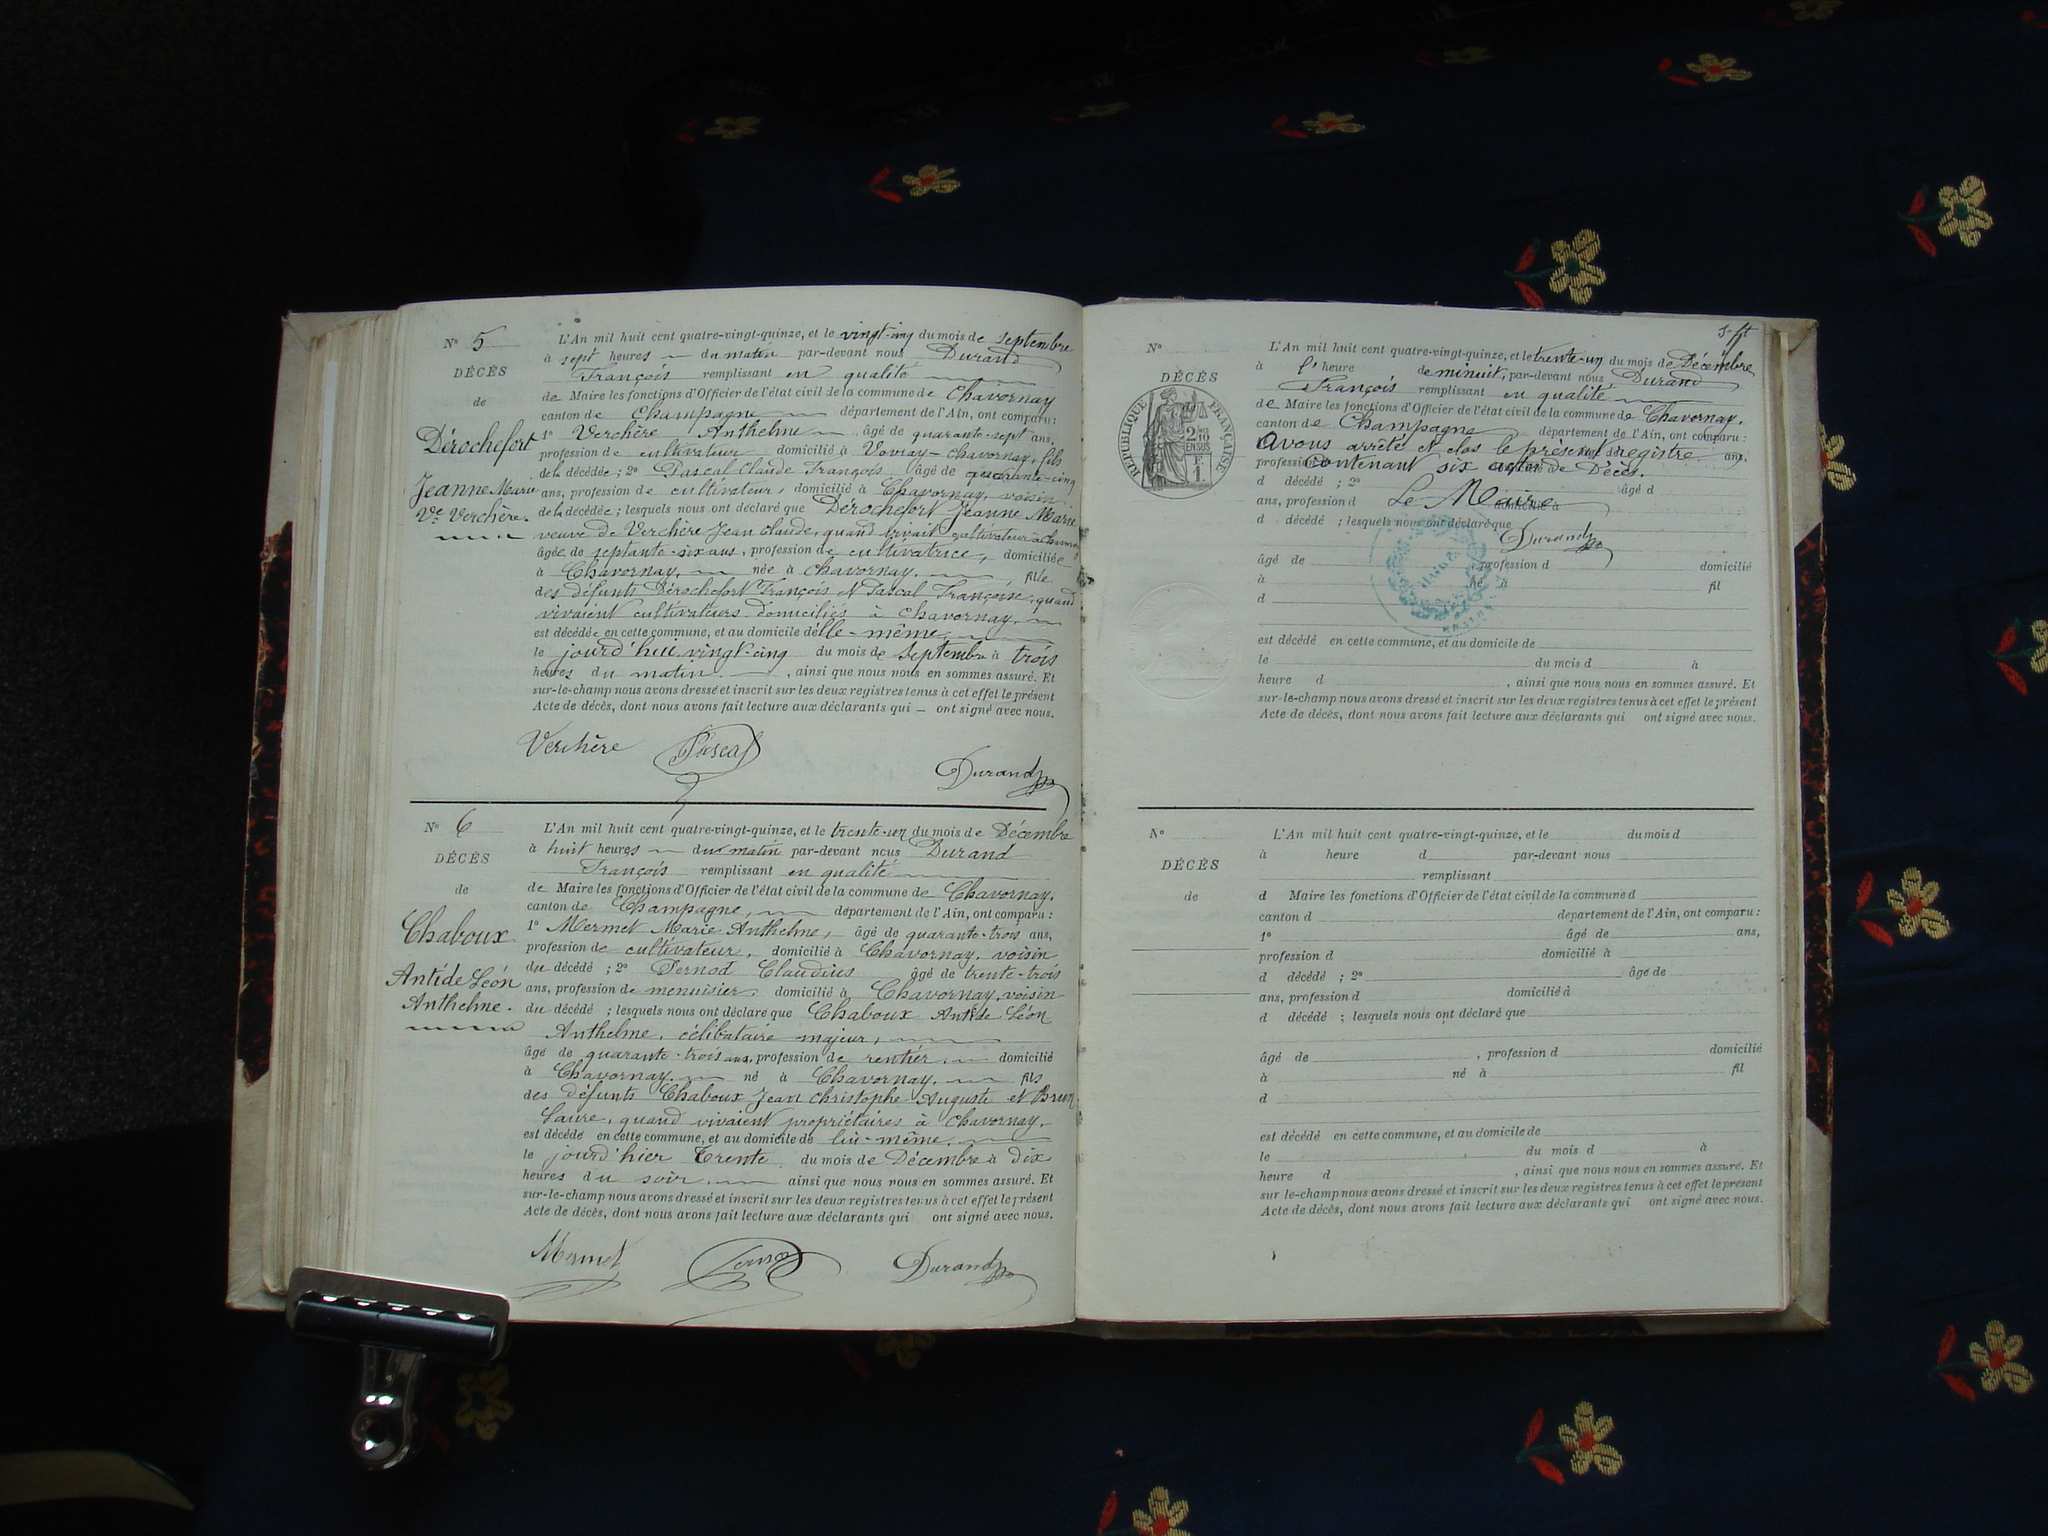 N° 5
DÉCÈS
de
Dérochefort
Jeanne Marie
Ve Verchère.
L'An mil huit cent quatre-vingt-quinze, et le vingt-cinq du mois de Septembre
à sept heures du matin par-devant nous Durand
François remplissant en qualité
de Maire les fonctions d'Officier de l'état civil de la commune de Chavornay
canton de Champagne département de l'Ain, ont comparu :
1° Verchère Anthelme âgé de quarante-sept ans,
profession de cultivateur domicilié à Vovray-Chavornay, fils
de la décédée ; 2° Pascal Claude François âgé de quarante-cinq
ans, profession de cultivateur, domicilié à Chavornay, voisin
de la décédée ; lesquels nous ont déclaré que Dérochefort Jeanne Marie
veuve de Verchère Jean Claude, quand vivait cultivateur à
âgée de septante-six ans, profession de cultivatrice, domiciliée
à Chavornay, née à Chavornay, fille
des défunts Dérochefort François et Pascal Françoise, quand
vivaient cultivateurs domiciliés à Chavornay,
est décédée en cette commune, et au domicile d'elle-même,
le jourd'hui vingt-cinq du mois de Septembre à trois
heures du matin, ainsi que nous nous en sommes assuré. Et
sur-le-champ nous avons dressé et inscrit sur les deux registres tenus à cet effet le présent
Acte de décès, dont nous avons fait lecture aux déclarants qui ont signé avec nous.
Verchère Pascal Durand
N° 6
DÉCÈS
de
Chaboux
Antide Léon
Anthelme.
L'An mil huit cent quatre-vingt-quinze, et le trente-un du mois de Décembre
à huit heures du matin par-devant nous Durand
François remplissant en qualité
de Maire les fonctions d'Officier de l'état civil de la commune de Chavornay,
canton de Champagne, département de l'Ain, ont comparu :
1° Mermet Marie Anthelme, âgé de quarante-trois ans,
profession de cultivateur, domicilié à Chavornay, voisin
du décédé ; 2° Pernod Claudius âgé de trente-trois
ans, profession de menuisier, domicilié à Chavornay, voisin
du décédé ; lesquels nous ont déclaré que Chaboux Antide Léon
Anthelme, célibataire majeur,
âgé de quarante-trois ans, profession de rentier, domicilié
à Chavornay, né à Chavornay, fils
des défunts Chaboux Jean Christophe Auguste et Brun
Laure, quand vivaient propriétaires à Chavornay,
est décédé en cette commune, et au domicile de lui-même,
le jourd'hier Trente du mois de Décembre à Dix
heures du soir, ainsi que nous nous en sommes assuré. Et
sur-le-champ nous avons dressé et inscrit sur les deux registres tenus à cet effet le présent
Acte de décès, dont nous avons fait lecture aux déclarants qui ont signé avec nous.
Mermet Pernod Durand
N°
DÉCÈS
RÉPUBLIQUE FRANÇAISE
L'An mil huit cent quatre-vingt-quinze, et le trente-un du mois de Décembre
à l'heure de minuit, par-devant nous Durand
François remplissant en qualité
de Maire les fonctions d'Officier de l'état civil de la commune de Chavornay,
canton de Champagne département de l'Ain, ont comparu :
Avons arrêté et clos le présent registre ans,
profession contenant six actes de Décès.
d décédé ; 2° âgé d
ans, profession d Le Maire domicilié à
d décédé ; lesquels nous ont déclaré que
Durand
âgé de profession d domicilié
à né à fil
d
est décédé en cette commune, et au domicile de
le du mois d à
heure d , ainsi que nous nous en sommes assuré. Et
sur-le-champ nous avons dressé et inscrit sur les deux registres tenus à cet effet le présent
Acte de décès, dont nous avons fait lecture aux déclarants qui ont signé avec nous.
N°
DÉCÈS
de
L'An mil huit cent quatre-vingt-quinze, et le du mois d
à heure d par-devant nous
remplissant
d Maire les fonctions d'Officier de l'état civil de la commune d
canton d département de l'Ain, ont comparu :
1° âgé de ans,
profession d domicilié à
d décédé ; 2° âge de
ans, profession d domicilié à
d décédé ; lesquels nous ont déclaré que
âgé de , profession d domicilié
à né à fil
d
est décédé en cette commune, et au domicile de
le du mois d à
heure d , ainsi que nous nous en sommes assuré. Et
sur le-champ nous avons dressé et inscrit sur les deux registres tenus à cet effet le présent
Acte de décès, dont nous avons fait lecture aux déclarants qui ont signé avec nous.